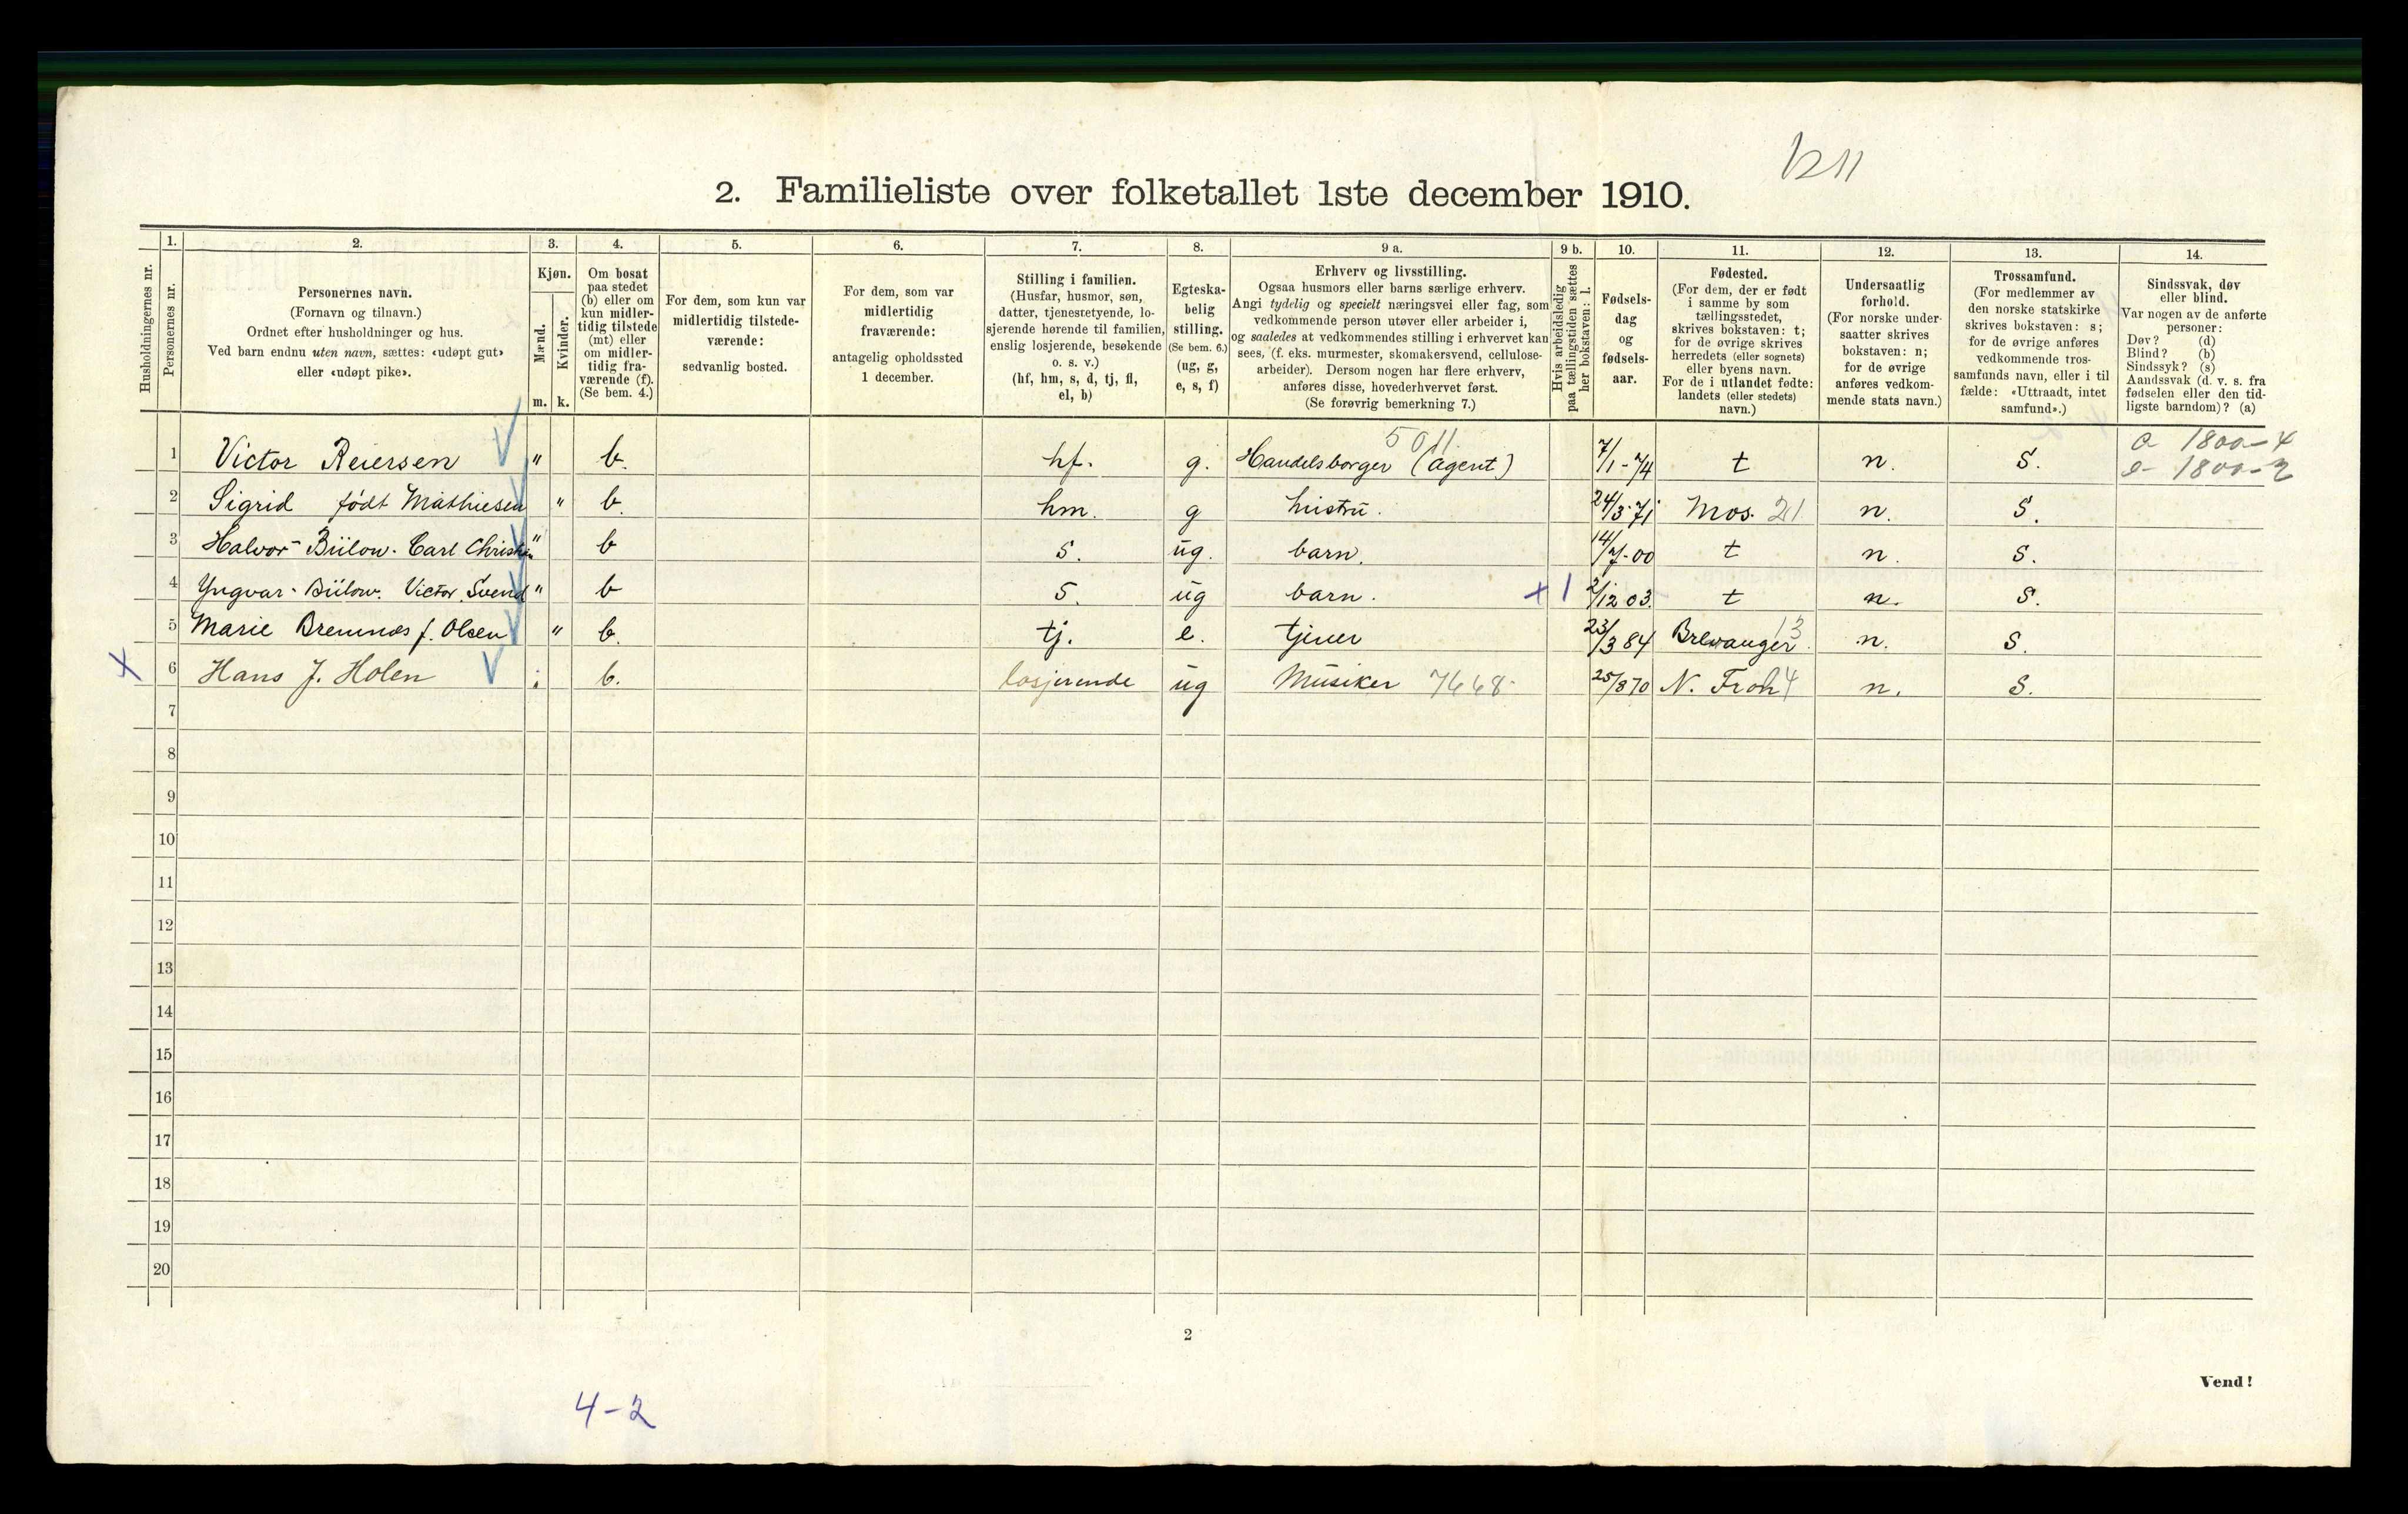 1211
2. Familieliste over folketallet 1ste december 1910.
1. 2. 3. 4. 5. 6. 7. 8. 9 a. 9 b. 10. 11. 12. 13. 14.
Husholdningernes nr.
Personernes nr.
Personernes navn.
(Fornavn og tilnavn.)
Ordnet efter husholdninger og hus.
Ved barn endnu uten navn, sættes: «udøpt gut»
eller «udøpt pike».
Kjøn.
Mænd.
Kvinder.
m. k.
Om bosat
paa stedet
(b) eller om
kun midler-
tidig tilstede
(mt) eller
om midler-
tidig fra-
værende (f).
(Se bem. 4.)
For dem, som kun var
midlertidig tilstede-
værende:
sedvanlig bosted.
For dem, som var
midlertidig
fraværende:
antagelig opholdssted
1 december.
Stilling i familien.
(Husfar, husmor, søn,
datter, tjenestetyende, lo-
sjerende hørende til familien,
enslig losjerende, besøkende
o. s. v.)
(hf, hm, s, d, tj, fl,
el, b)
Egteska-
belig
stilling.
(Se bem. 6.)
(ug, g,
e, s, f)
Erhverv og livsstilling.
Ogsaa husmors eller barns særlige erhverv.
Angi tydelig og specielt næringsvei eller fag, som
vedkommende person utøver eller arbeider i,
og saaledes at vedkommendes stilling i erhvervet kan
sees, (f. eks. murmester, skomakersvend, cellulose-
arbeider). Dersom nogen har flere erhverv,
anføres disse, hovederhvervet først.
(Se forøvrig bemerkning 7.)
Hvis arbeidsledig
paa tællingstiden sættes
her bokstaven: l.
Fødsels-
dag
og
fødsels-
aar.
Fødested.
(For dem, der er født
i samme by som
tællingsstedet,
skrives bokstaven: t;
for de øvrige skrives
herredets (eller sognets)
eller byens navn.
For de i utlandet fødte:
landets (eller stedets)
navn.)
Undersaatlig
forhold.
(For norske under-
saatter skrives
bokstaven: n;
for de øvrige
anføres vedkom-
mende stats navn.)
Trossamfund.
(For medlemmer av
den norske statskirke
skrives bokstaven: s;
for de øvrige anføres
vedkommende tros-
samfunds navn, eller i til
fælde: «Uttraadt, intet
samfund».)
Sindssvak, døv
eller blind.
Var nogen av de anførte
personer:
Døv? (d)
Blind? (b)
Sindssyk? (s)
Aandssvak (d. v. s. fra
fødselen eller den tid-
ligste barndom)? (a)
5011. a 1800-4
1 Victor Reiersen " b. hf. g. Handelsborger (Agent) 7/1-74 t n. S. e- 1800-2
2 Sigrid født Mathiesen " b. hm. g hustru. 24/3-71 Mos. 21 n. S.
3 Halvor-Bülow. Carl Christian " b s. ug. barn. 14/7-00 t n. S.
4 Yngvar-Bülow. Victor Svend " b s. ug barn. + 1 2/12 03. t n. S.
5 Marie Bremnes f. Olsen " b. tj. e. tjener 23/3 84 Brevanger 13 n. S.
+ 6 Hans J. Holen " b. losjerende ug Musiker 7668 25/8 70 N. Froh 4 n. S.
7
8
9
10
11
12
13
14
15
16
17
18
19
20
2
Vend!
4-2